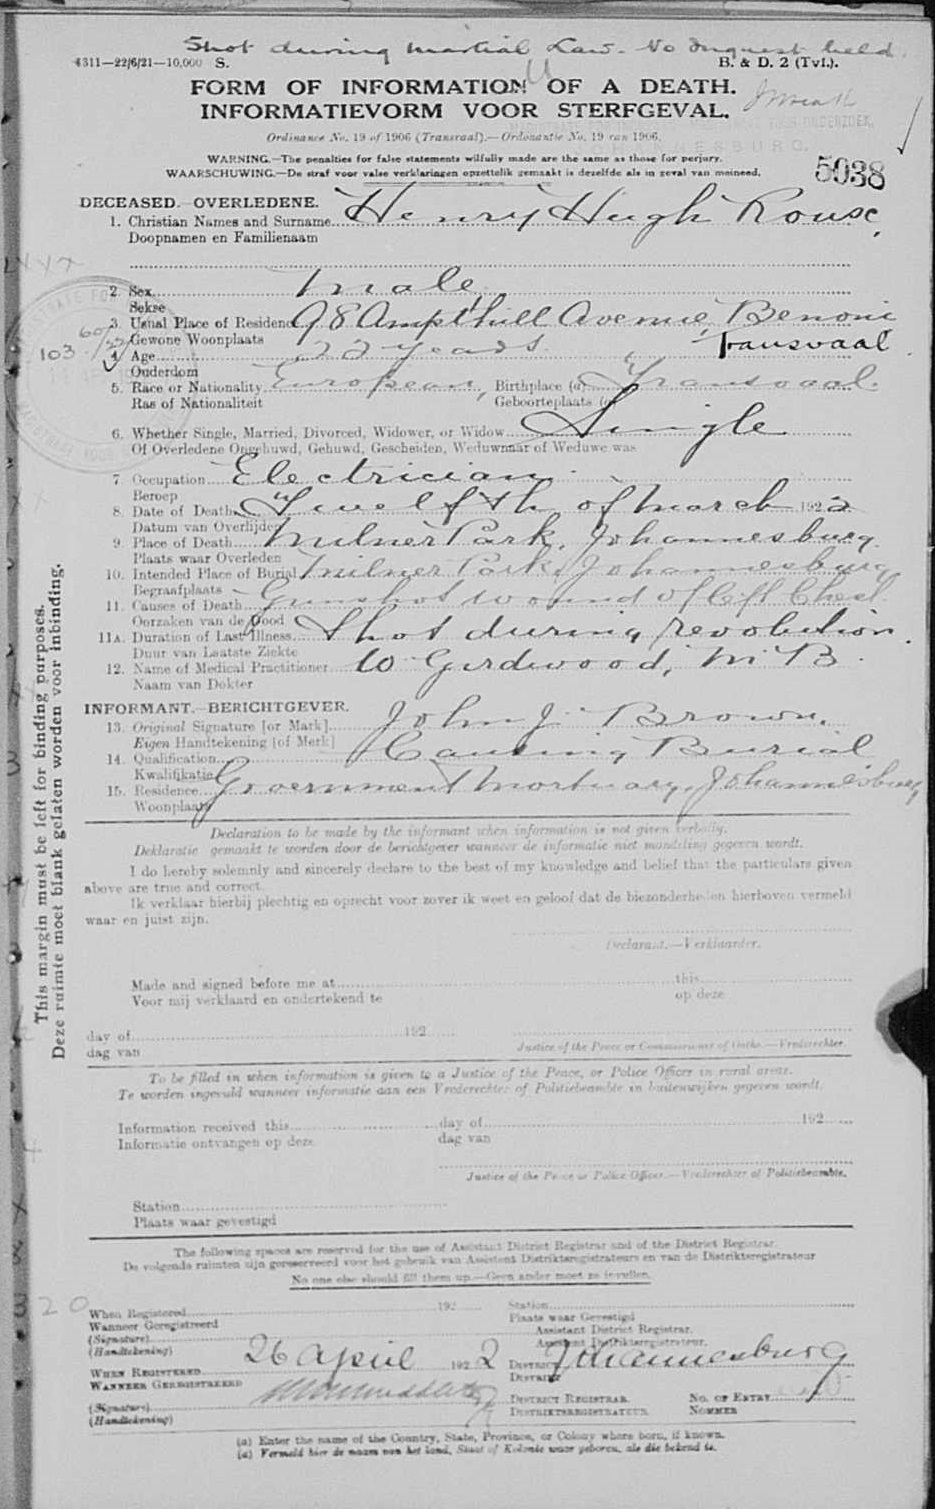 Shot during Martial Law. No Inquest held.
4311—22/6/21—10,000 S. B. & D. 2 (Tvl.).
FORM OF INFORMATION OF A DEATH.
INFORMATIEVORM VOOR STERFGEVAL.
Ordinance No. 19 of 1906 (Transvaal).—Ordonantie No. 19 van 1906.
JOHANNESBURG.
WARNING.—The penalties for false statements wilfully made are the same as those for perjury.
WAARSCHUWING.—De straf voor valse verklaringen opzettelik gemaakt is dezelfde als in geval van meineed.
5038
DECEASED.—OVERLEDENE.
1. Christian Names and Surname Henry Hugh Rouse,
Doopnamen en Familienaam
2. Sex Male
Sekse
3. Usual Place of Residence 98 Ampthill Avenue, Benoni
Gewone Woonplaats Transvaal
103
4. Age 22 years
Ouderdom
5. Race or Nationality European, Birthplace (a) Transvaal.
Ras of Nationaliteit Geboorteplaats (a)
6. Whether Single, Married, Divorced, Widower, or Widow Single
Of Overledene Ongehuwd, Gehuwd, Gescheiden, Weduwnaar of Weduwe was
7. Occupation Electrician.
Beroep
8. Date of Death Twelfth of March 1922
Datum van Overlijden
9. Place of Death Milner Park, Johannesburg.
Plaats waar Overleden
10. Intended Place of Burial Milner Park, Johannesburg
Begraafplaats
11. Causes of Death Gunshot wound of left Chest
Oorzaken van de Dood
11A. Duration of Last Illness Shot during revolution.
Duur van Laatste Ziekte
12. Name of Medical Practitioner W Girdwood, M B.
Naam van Dokter
INFORMANT.—BERICHTGEVER.
13. Original Signature [or Mark] John J. Brown.
Eigen Handtekening [of Merk]
14. Qualification Causing Burial
Kwalifikatie
15. Residence Government Mortuary, Johannesburg
Woonplaats
Declaration to be made by the informant when information is not given verbally.
Deklaratie gemaakt te worden door de berichtgever wanneer de informatie niet mondeling gegeven wordt.
I do hereby solemnly and sincerely declare to the best of my knowledge and belief that the particulars given
above are true and correct.
Ik verklaar hierbij plechtig en oprecht voor zover ik weet en geloof dat de biezonderheden hierboven vermeld
waar en juist zijn.
Declarant.—Verklaarder.
Made and signed before me at this
Voor mij verklaard en ondertekend te op deze
day of 192
dag van Justice of the Peace or Commissioner of Oaths.—Vrederechter.
To be filled in when information is given to a Justice of the Peace, or Police Officer in rural areas.
Te worden ingevuld wanneer informatie aan een Vrederechter of Politiebeambte in buitenwijken gegeven wordt.
Information received this day of 192
Informatie ontvangen op deze dag van
Justice of the Peace or Police Officer.—Vrederechter of Politiebeambte.
Station
Plaats waar gevestigd
The following spaces are reserved for the use of Assistant District Registrar and of the District Registrar.
De volgende ruimten zijn gereserveerd voor het gebruik van Assistent Distriktsregistrateurs en van de Distriktsregistrateur
No one else should fill them up.—Geen ander moet ze invullen.
20
When Registered 192 Station
Wanneer Geregistreerd Plaats waar Gevestigd
(Signature) Assistant District Registrar.
(Handtekening) Assistent Distriktsregistrateur.
WHEN REGISTERED 26 April 1922 DISTRICT Johannesburg
WANNEER GEREGISTREERD DISTRIKT
(Signature) DISTRICT REGISTRAR. NO. OF ENTRY
(Handtekening) DISTRIKTSREGISTRATEUR NOMMER
(a) Enter the name of the Country, State, Province, or Colony where born, if known.
(a) Vermeld hier de naam van het land, Staat of Kolonie waar geboren, als die bekend is.
This margin must be left for binding purposes.
Deze ruimte moet blank gelaten worden voor inbinding.